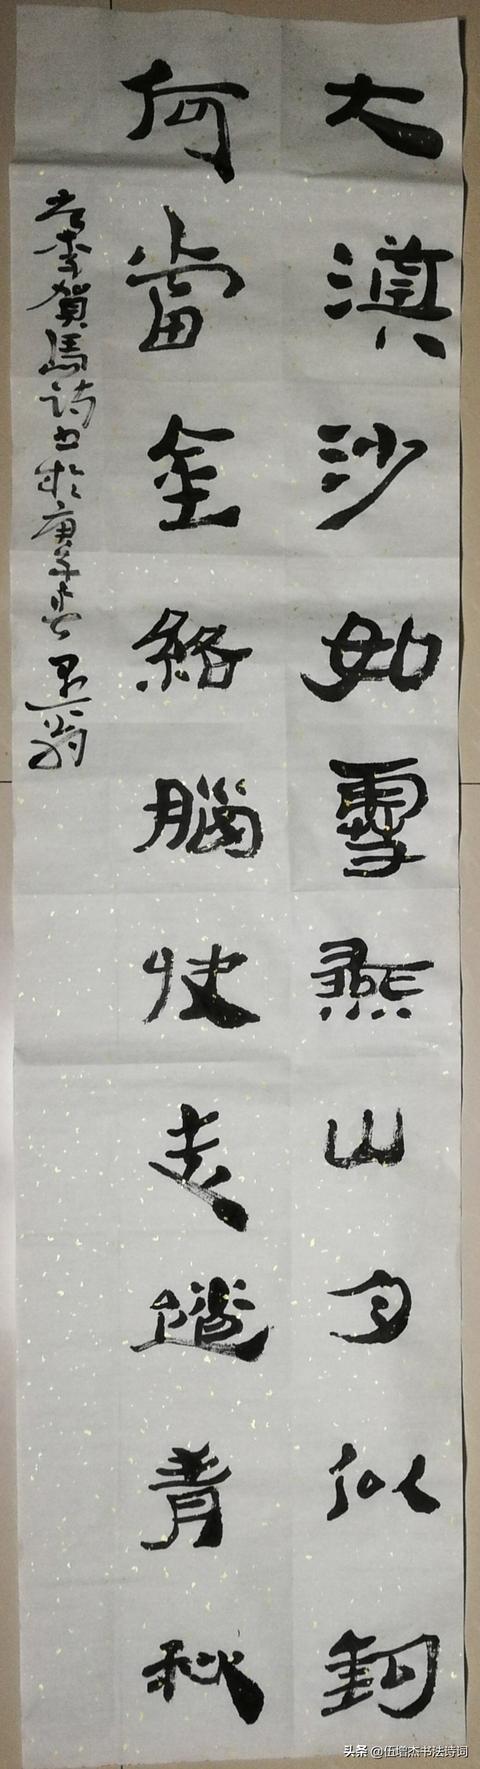 大漠沙如雪燕山月似鉤
何當金絡腦快走踏青秋
李賀馬诗书於庚子
头条 @伍增杰书法诗词